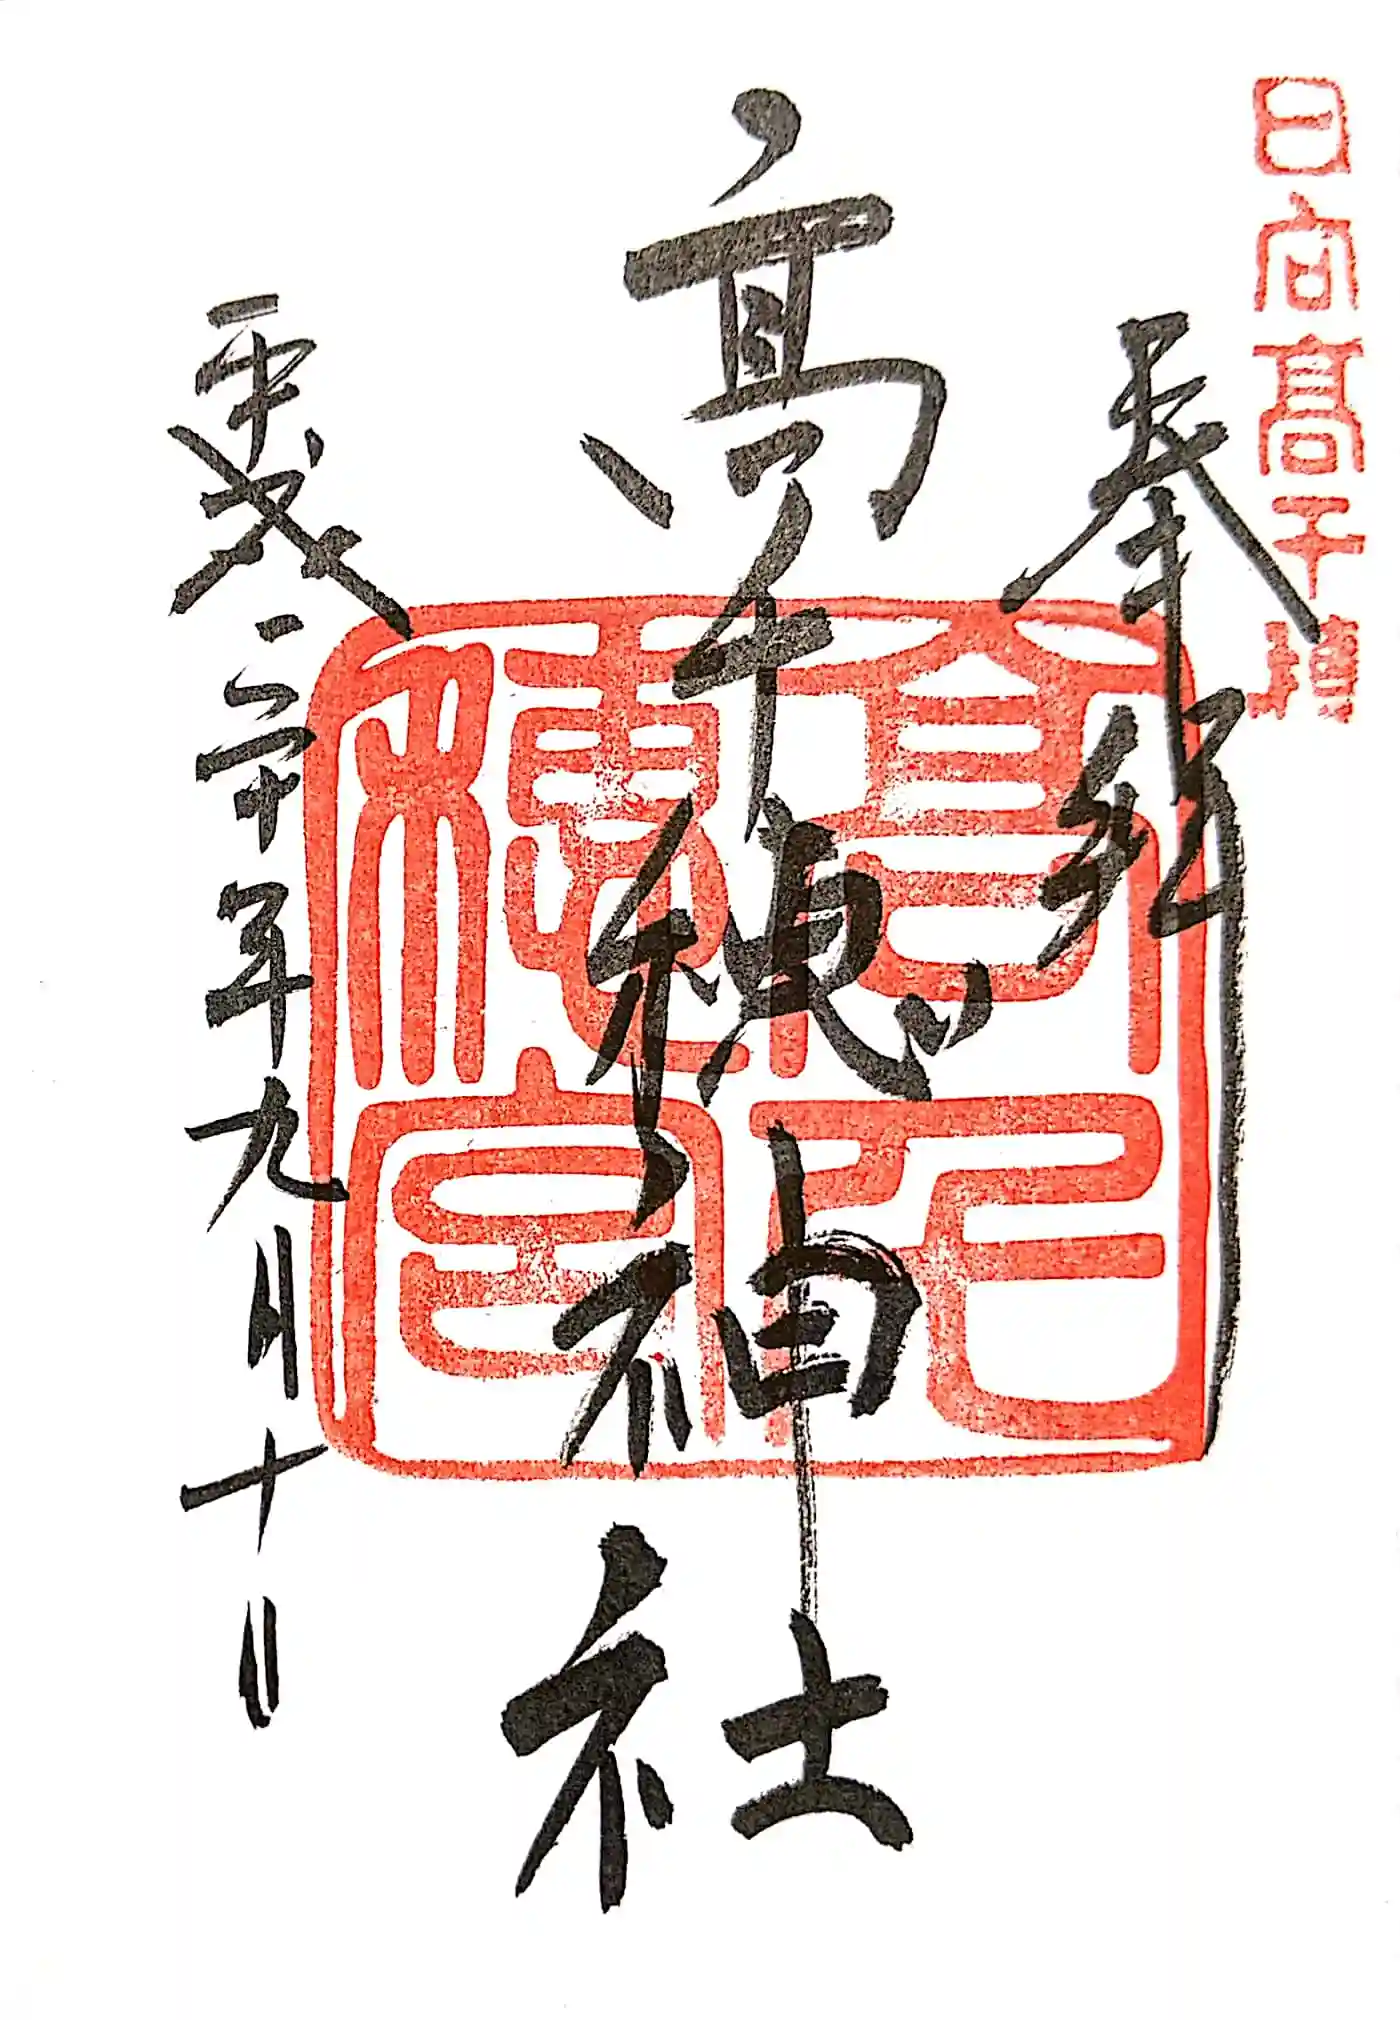 日向髙千穂
奉拝
髙千穂神社
高千穂宮
平成三十年九月十日